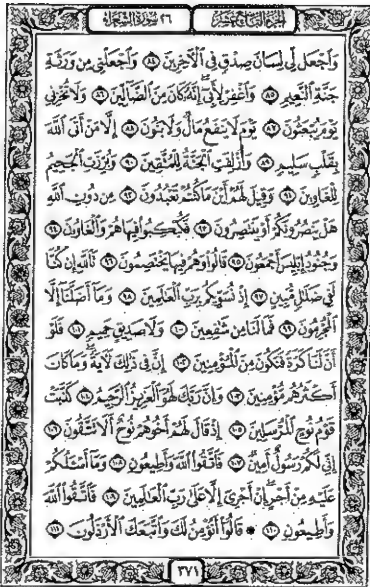 الجزء التاسع عشر ٢٦ سورة الشعراء
وَٱجْعَل لِّى لِسَانَ صِدْقٍ فِى ٱلْءَاخِرِينَ ٨٤ وَٱجْعَلْنِى مِن وَرَثَةِ
جَنَّةِ ٱلنَّعِيمِ ٨٥ وَٱغْفِرْ لِأَبِىٓ إِنَّهُۥ كَانَ مِنَ ٱلضَّآلِّينَ ٨٦ وَلَا تُخْزِنِى
يَوْمَ يُبْعَثُونَ ٨٧ يَوْمَ لَا يَنفَعُ مَالٌ وَلَا بَنُونَ ٨٨ إِلَّا مَنْ أَتَى ٱللَّهَ
بِقَلْبٍ سَلِيمٍ ٨٩ وَأُزْلِفَتِ ٱلْجَنَّةُ لِلْمُتَّقِينَ ٩٠ وَبُرِّزَتِ ٱلْجَحِيمُ
لِلْغَاوِينَ ٩١ وَقِيلَ لَهُمْ أَيْنَ مَا كُنتُمْ تَعْبُدُونَ ٩٢ مِن دُونِ ٱللَّهِ
هَلْ يَنصُرُونَكُمْ أَوْ يَنتَصِرُونَ ٩٣ فَكُبْكِبُوا۟ فِيهَا هُمْ وَٱلْغَاوُۥنَ ٩٤
وَجُنُودُ إِبْلِيسَ أَجْمَعُونَ ٩٥ قَالُوا۟ وَهُمْ فِيهَا يَخْتَصِمُونَ ٩٦ تَٱللَّهِ إِن كُنَّا
لَفِى ضَلَٰلٍ مُّبِينٍ ٩٧ إِذْ نُسَوِّيكُم بِرَبِّ ٱلْعَٰلَمِينَ ٩٨ وَمَآ أَضَلَّنَآ إِلَّا
ٱلْمُجْرِمُونَ ٩٩ فَمَا لَنَا مِن شَٰفِعِينَ ١٠٠ وَلَا صَدِيقٍ حَمِيمٍ ١٠١ فَلَوْ
أَنَّ لَنَا كَرَّةً فَنَكُونَ مِنَ ٱلْمُؤْمِنِينَ ١٠٢ إِنَّ فِى ذَٰلِكَ لَءَايَةً وَمَا كَانَ
أَكْثَرُهُم مُّؤْمِنِينَ ١٠٣ وَإِنَّ رَبَّكَ لَهُوَ ٱلْعَزِيزُ ٱلرَّحِيمُ ١٠٤ كَذَّبَتْ
قَوْمُ نُوحٍ ٱلْمُرْسَلِينَ ١٠٥ إِذْ قَالَ لَهُمْ أَخُوهُمْ نُوحٌ أَلَا تَتَّقُونَ ١٠٦
إِنِّى لَكُمْ رَسُولٌ أَمِينٌ ١٠٧ فَٱتَّقُوا۟ ٱللَّهَ وَأَطِيعُونِ ١٠٨ وَمَآ أَسْـَٔلُكُمْ
عَلَيْهِ مِنْ أَجْرٍ إِنْ أَجْرِىَ إِلَّا عَلَىٰ رَبِّ ٱلْعَٰلَمِينَ ١٠٩ فَٱتَّقُوا۟ ٱللَّهَ
وَأَطِيعُونِ ١١٠ ۞ قَالُوٓا۟ أَنُؤْمِنُ لَكَ وَٱتَّبَعَكَ ٱلْأَرْذَلُونَ ١١١
٣٧١